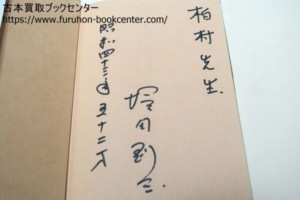 古本買取ブックセンター
https://www.furuhon-bookcenter.com/
柏村先生
昭和四十三年五十二才